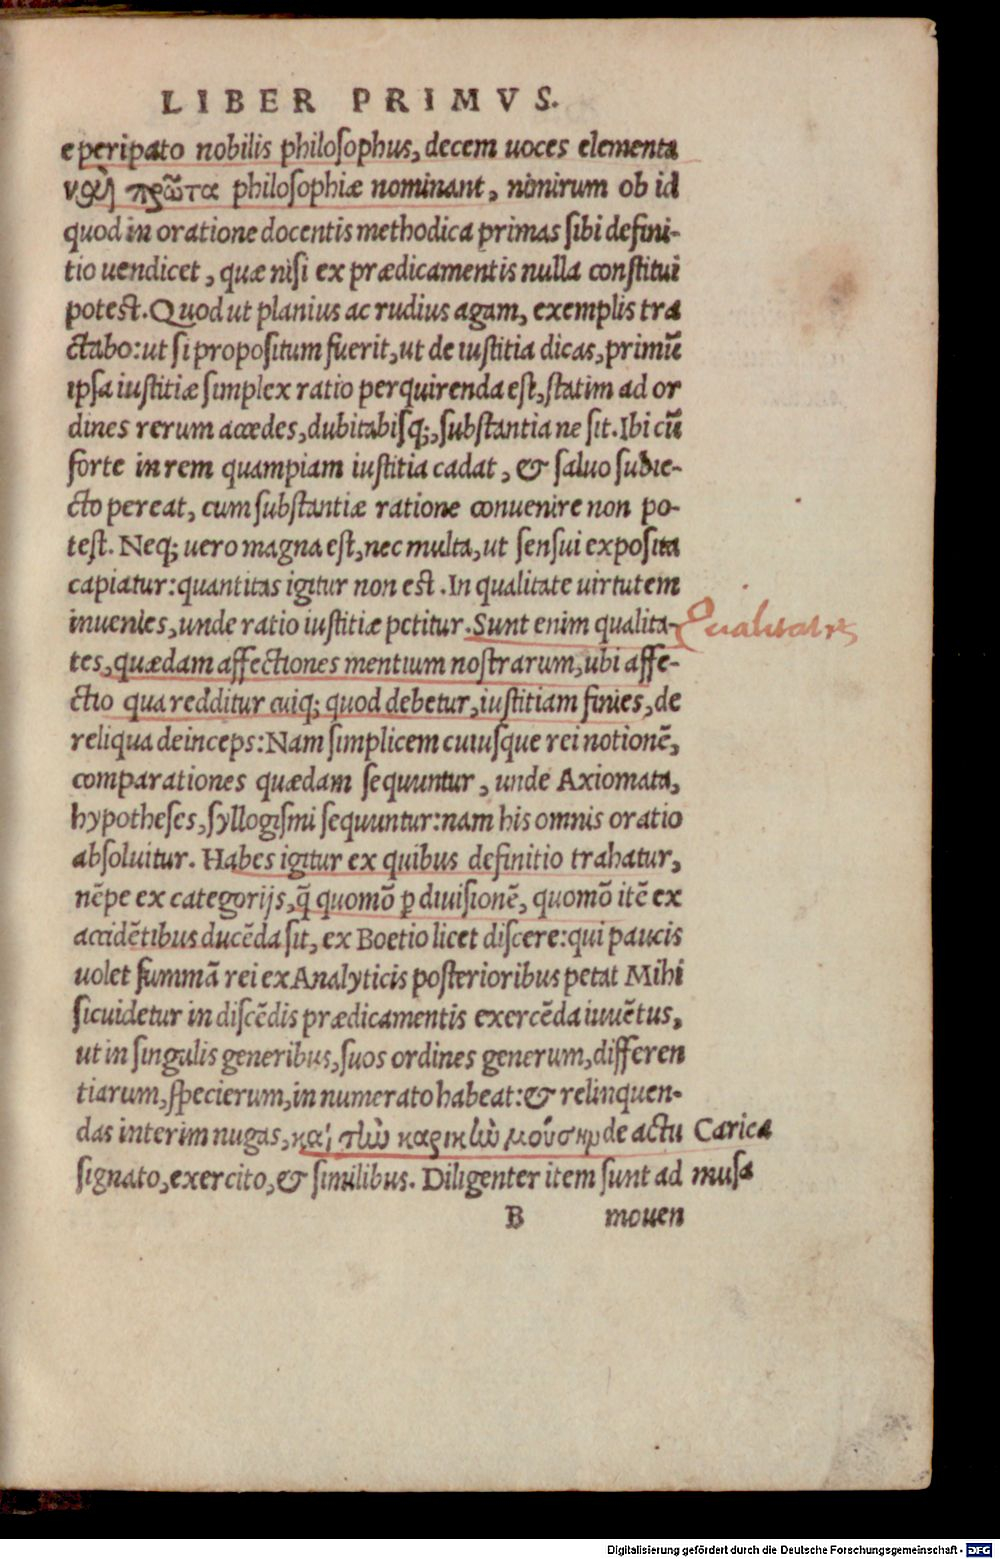 LIBER PRIMVS.
e peripato nobilis philosophus, decem uoces elementa
καὶ πρῶτα philosophiæ nominant, nimirum ob id
quod in oratione docentis methodica primas sibi defini-
tio uendicet, quæ nisi ex prædicamentis nulla constitui
potest. Quod ut planius ac rudius agam, exemplis tra
ctabo: ut si propositum fuerit, ut de iustitia dicas, primū
ipsa iustitiæ simplex ratio perquirenda est, statim ad or
dines rerum accedes, dubitabisq;, substantia ne sit. Ibi cū
forte in rem quampiam iustitia cadat, & saluo subie-
cto pereat, cum substantiæ ratione conuenire non po-
test. Neq; uero magna est, nec multa, ut sensui exposita
capiatur: quantitas igitur non est. In qualitate uirtutem
inuenies, unde ratio iustitiæ petitur. Sunt enim qualita- Qualitates
tes, quædam affectiones mentium nostrarum, ubi affe-
ctio qua redditur cuiq; quod debetur, iustitiam finies, de
reliqua deinceps: Nam simplicem cuiusque rei notionē,
comparationes quædam sequuntur, unde Axiomata,
hypotheses, syllogismi sequuntur: nam his omnis oratio
absoluitur. Habes igitur ex quibus definitio trahatur,
nēpe ex categorijs, q̄ quomō ꝑ diuisionē, quomō itē ex
accidētibus ducēda sit, ex Boetio licet discere: qui paucis
uolet summā rei ex Analyticis posterioribus petat Mihi
sic uidetur in discēdis prædicamentis exercēda iuuētus,
ut in singulis generibus, suos ordines generum, differen
tiarum, specierum, in numerato habeat: & relinquen-
das interim nugas, καὶ τὼ καρικὼ μούσην de actu Carica
signato, exercito, & similibus. Diligenter item sunt ad musa
B mouen
Digitalisierung gefördert durch die Deutsche Forschungsgemeinschaft - DFG